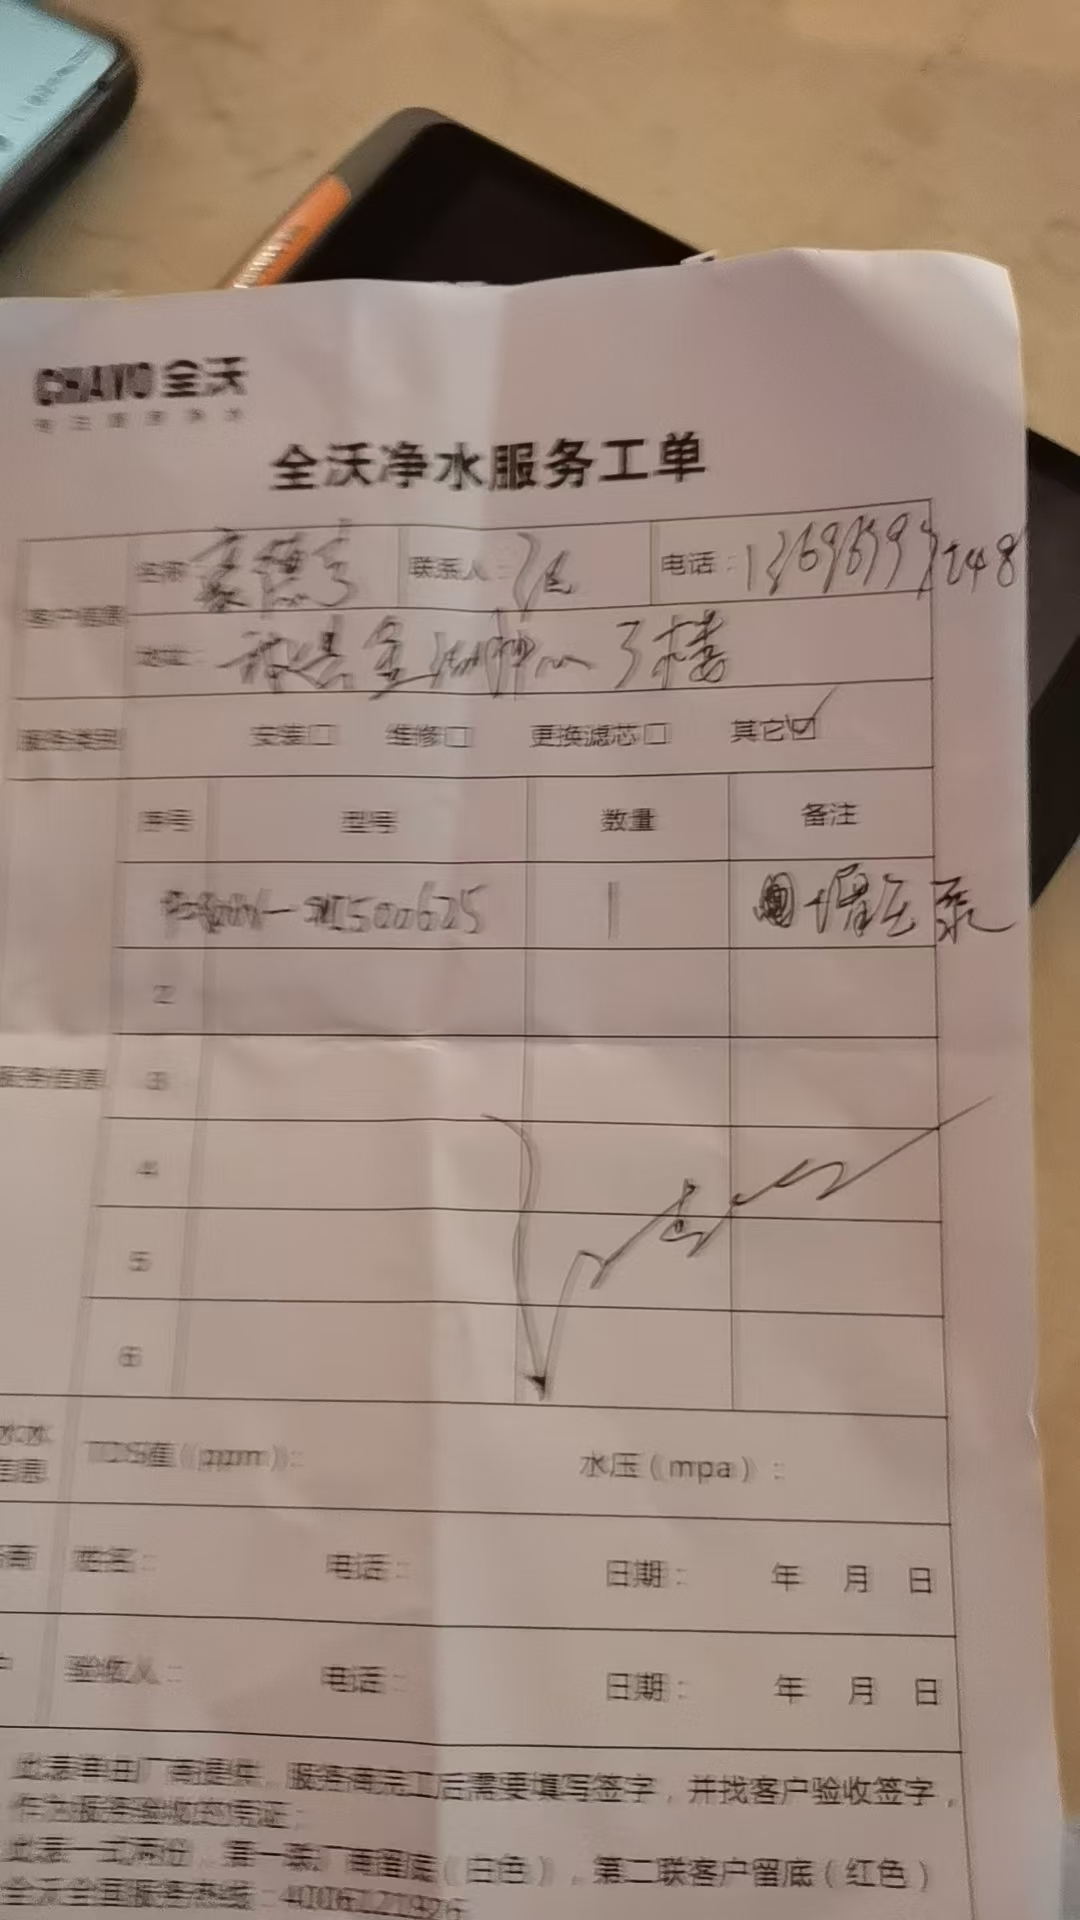 CHAVO 全沃
全沃净水服务工单
客户信息 名称: 豪德亨 联系人: 电话:
地址: 3楼
服务类别 安装□ 维修□ 更换滤芯□ 其它☑
序号 型号 数量 备注
1 增压泵
2
服务信息 3
4
5
6
TDS值(ppm): 水压(mpa):
姓名: 电话: 日期: 年 月 日
验收人: 电话: 日期: 年 月 日
此表单由厂商提供,服务商完工后需要填写签字,并找客户验收签字,
作为服务验收的凭证;
此表一式两份,第一联厂商留底(白色),第二联客户留底(红色)
全沃全国服务热线:4006121926